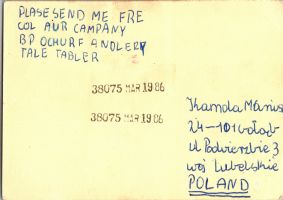 PLASE SEND ME FRE
COL AUR CAMPANY
BP OCHURF ANDLERY
TALE TABLER
38075 MAR 19 86
38075 MAR 19 86
Kamola Mariusz
24-101 Gołąb
ul Podwierzbie 3
woj lubelskie
POLAND